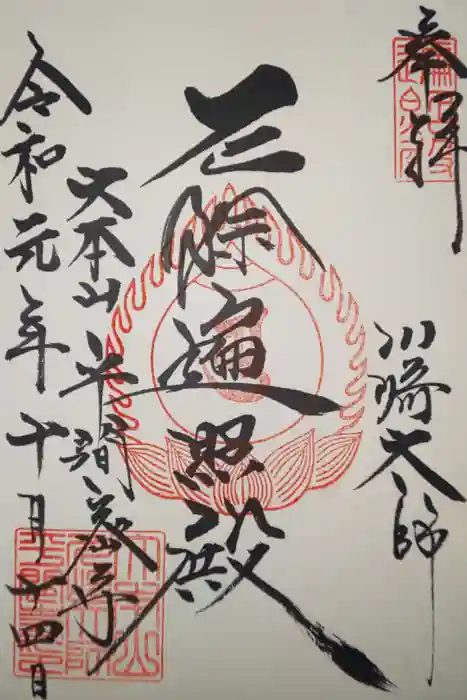 奉拝
川崎大師
厄除遍照殿
大本山平間密寺
令和元年十月廿四日